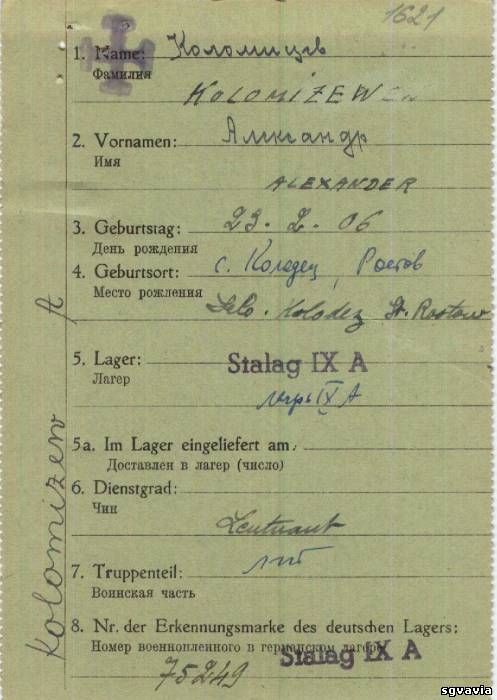 1621
1. Name: Коломицев
Фамилия
KOLOMIZEW
2. Vornamen: Александр
Имя
ALEXANDER
3. Geburtstag: 23. 2. 06
День рождения
4. Geburtsort: с. Колодец, Ростов
Место рожления
Selo. Kolodez St. Rostow
5. Lager: Stalag IX A
Лагер
лагрь IX A
5a. Im Lager eingeliefert am:
Доставлен в лагер (число)
6. Dienstgrad:
Чин
Leutnant
7. Truppenteil:
Воинская часть
8. Nr. der Erkennungsmarke des deutschen Lagers:
Номер военнопленного в германском лагере
Stalag IX A
75249
Kolomizew A
sgvavia